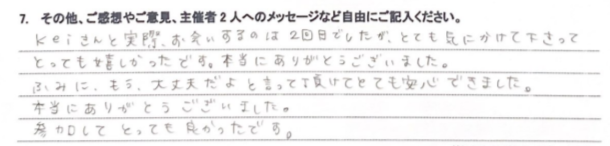 7. その他、ご感想やご意見、主催者2人へのメッセージなど自由にご記入ください。
Keiさんと実際、お会いするのは2回目でしたが、とても気にかけて下さって
とっても嬉しかったです。本当にありがとうございました。
ふみに、もう、大丈夫だよと言って頂けてとても安心できました。
本当にありがとうございました。
参加して とっても良かったです。